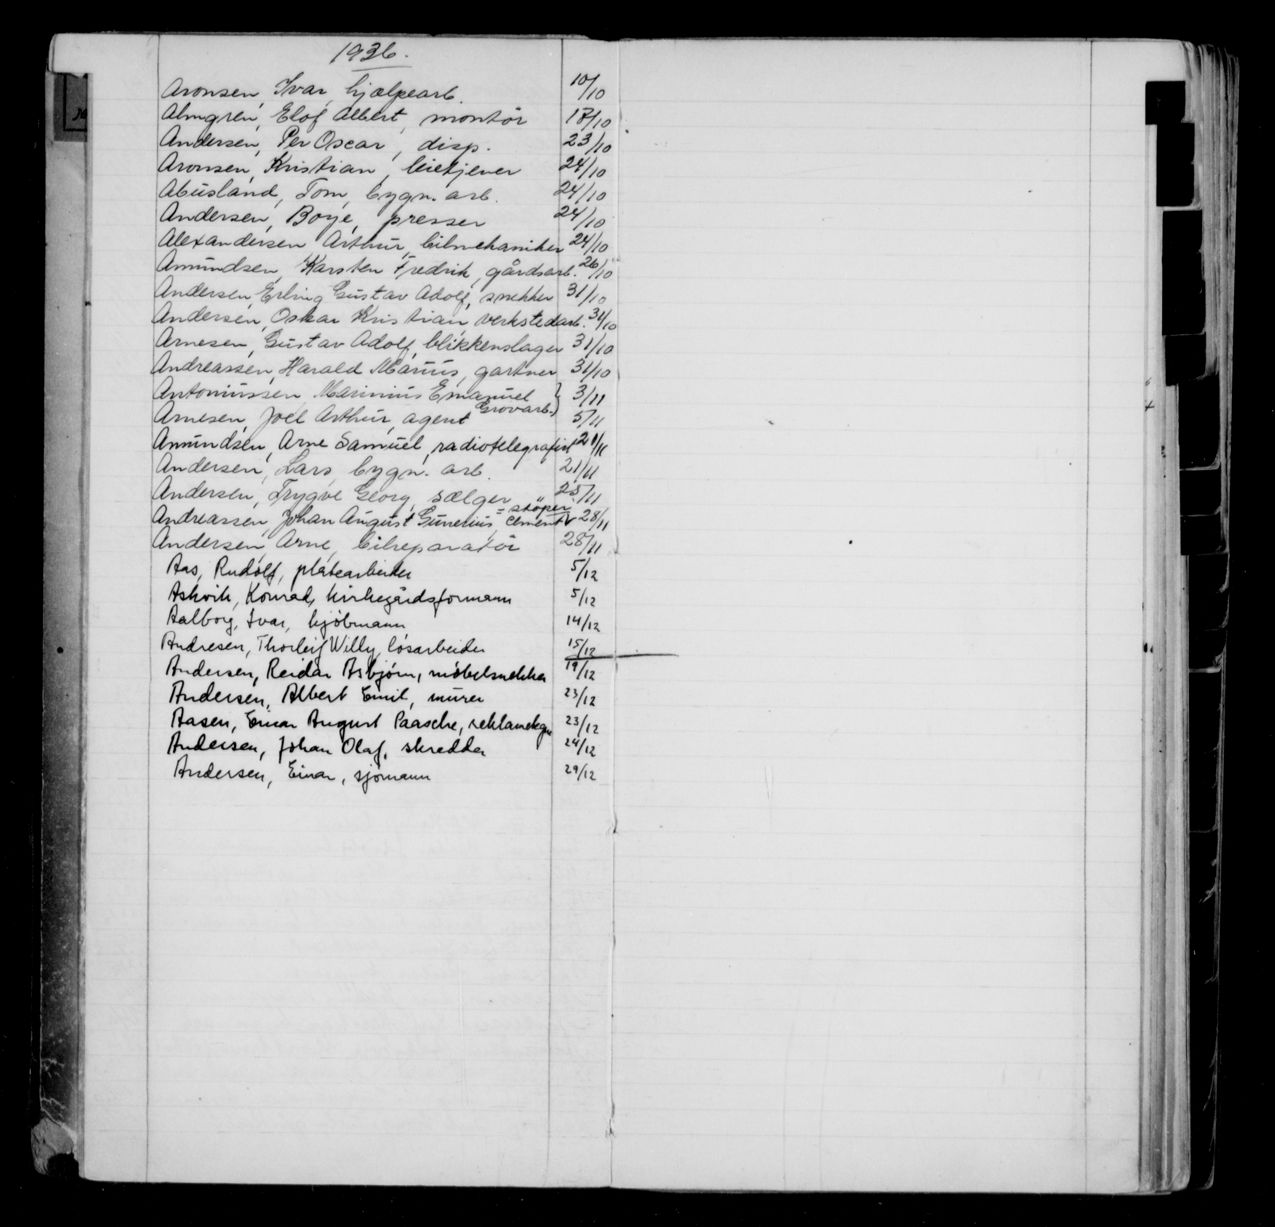 1936.
Aronsen, Ivar, hjælpearb. 10/10
Almgren, Elof Albert, montör 17/10
Andersen, Per Oscar, disp. 23/10
Aronsen, Kristian, leietjener 24/10
Abusland, Tom, bygn. arb. 24/10
Andersen, Boye, presser 24/10
Alexandersen Arthur, bilmekaniker 24/10
Amundsen Karsten Fredrik, gårdsarb. 26/10
Andersen, Erling Gustav Adolf, snekker 31/10
Andersen, Oskar Kristian, verkstedarb. 31/10
Arnesen, Gustav Adolf, blikkenslager 31/10
Andreassen, Harald Marius, gartner 31/10
Antoniussen, Marinius Emanuel 3/11
Grovarb.)
Arnesen, Joel Arthur, agent 5/11
Amundsen, Arne Samuel, radiotelegrafist 21/11
Andersen, Lars, bygn. arb. 21/11
Andersen, Trygve Georg, sælger 25/11
Andreassen, Johan August Gunerius, = cement støper 28/11
Andersen, Arne, bilreparatör 28/11
Aas, Rudolf, platearbeider 5/12
Askvik, Konrad, kirkegårdsformann 5/12
Aalborg, Ivar, kjøbmann 14/12
Andresen, Thorleif Willy, løsarbeider 15/12
Andersen, Reidar Asbjørn, møbelsnekker 19/12
Andersen, Albert Emil, murer 23/12
Aasen, Einar August Paasche, reklametegn 23/12
Andersen, Johan Olaf, skredder 24/12
Andersen, Einar, sjømann 29/12